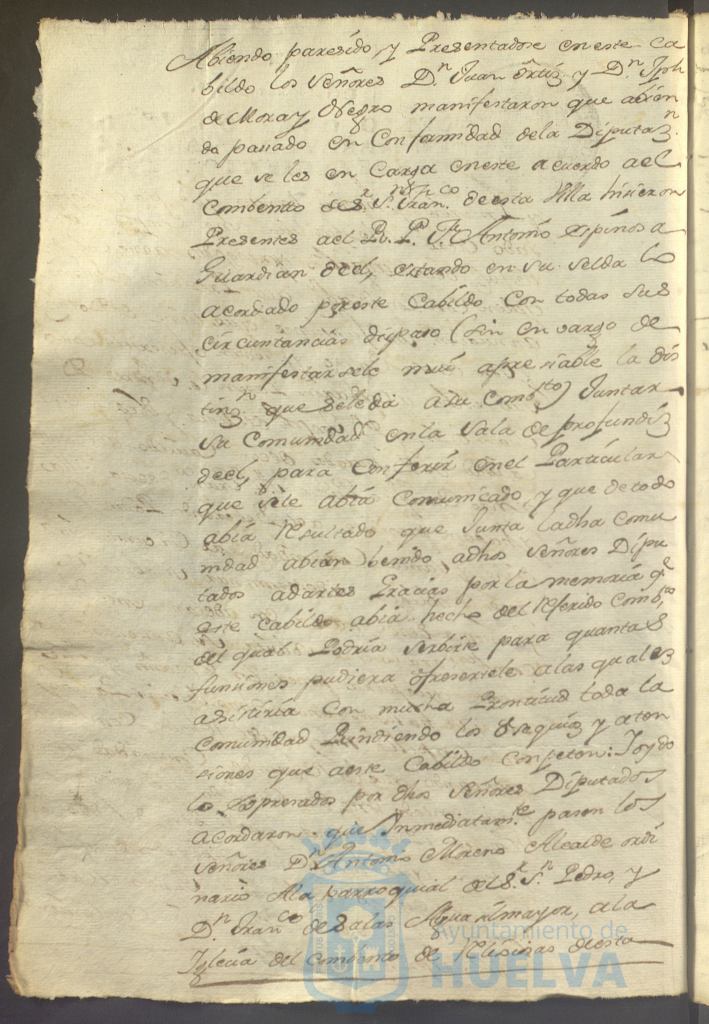 Abiendo paresido, y Presentadose en este Ca
bildo los Señores Dn. Juan Ortiz y Dn. Jph
de Mora y Negro manifestaron que abien
do pasado en Conformidad de la Diputazn.
que se les en Cargo en este acuerdo ael
Combento de Sr. Sn. Franco. de esta Villa hisieron
Presentes ael R. P. Fr. Antonio Espinosa
Guardian del, estando en su selda lo
acordado pr. este Cabildo Con todas sus
circuntancias dispuso (sin en vargo de
manifestarsele mui apresiable la dis
tinzn. que se le da a su Combto) Juntar
su Comunidad en la Sala de profundiz
deel, para Conferir en el Particular
que se le abia Comunicado, y que de todo
abia Resultado que Junta la dha Comu
nidad abian benido adhos Señores Dipu
tados adarles Gracias por la memoria qe.
este Cabildo abia hecho del Referido Combto,
del qual Podria serbirse para quantas
funsiones pudiera ofresersele alas quales
asistiria Con mucha Prontitud toda la
Comunidad Rindiendo los Obsequios y aten
siones que aeste Cabildo Competen: Y oydo
lo Expresado por dhos Señores Diputados
acordaron que Inmediatamte. pasen los
Señores Dn. Antonio Moreno Alcalde ordi
nario Ala parroquial del Sr. Sn. Pedro, y
Dn. Franco de Salas Alguasilmayor, a la
Yglecia del Combento de Relijiosas de esta
Ayuntamiento de
HUELVA